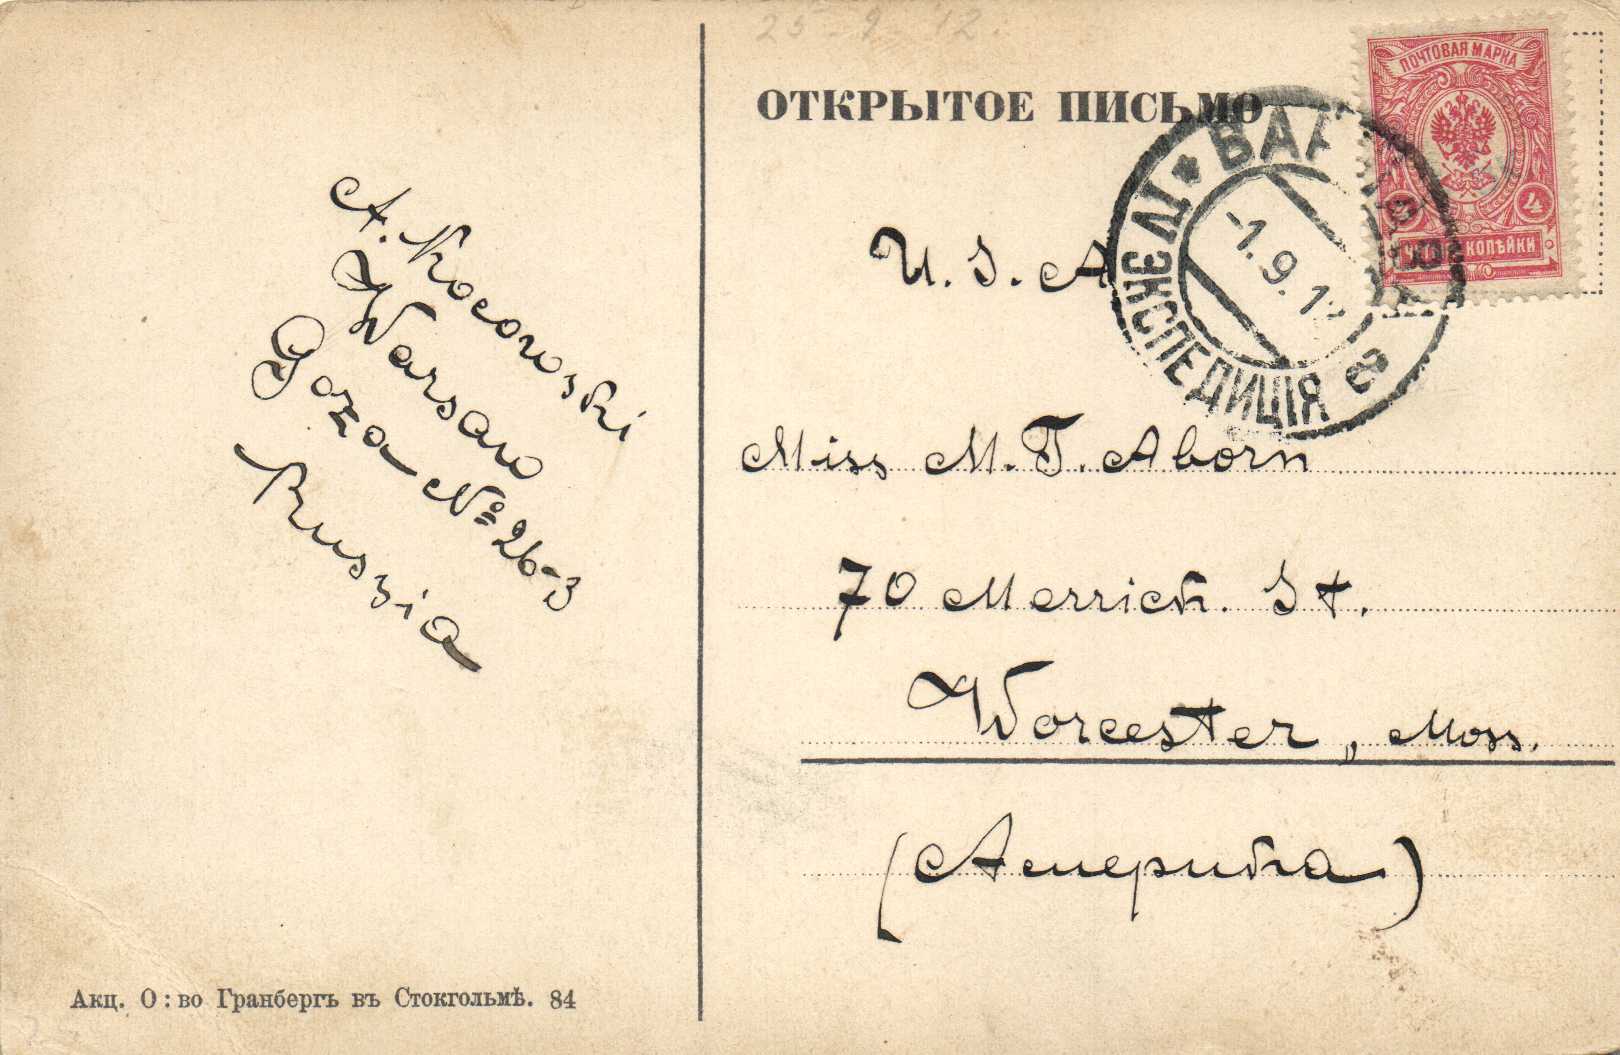 25 9 12.
ОТКРЫТОЕ ПИСЬМО
ПОЧТОВАЯ МАРКА
4
КОПѢЙКИ
ВАР
ЭКСПЕДИЦІЯ
-1.9.1
U. S. A
Miss M. T. Aborn
70 Merrick. St.
Worcester, Mass.
(Америка)
A. Kocowski
Warsaw
Goza № 26-3
Russia
Акц. О:во Гранбергъ въ Стокгольмѣ. 84